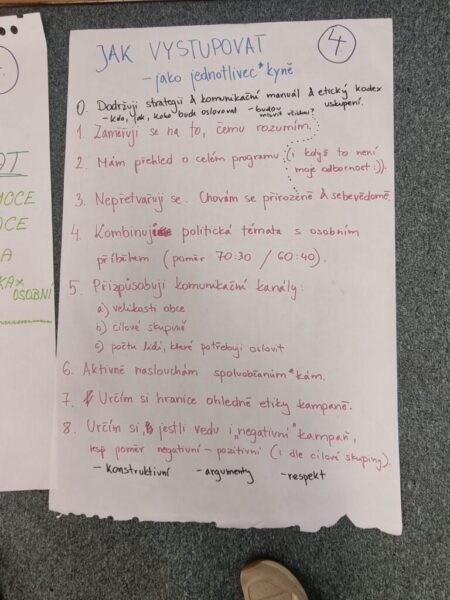 JAK VYSTUPOVAT
4
- jako jednotlivec*kyně
0. Dodržuji strategii & komunikační manuál & etický kodex
- kdo, jak, koho bude oslovovat - budou mluvit všichni? uskupení.
1. Zaměřuji se na to, čemu rozumím.
2. Mám přehled o celém programu (i když to není
moje odbornost :)).
3. Nepřetvařuji se. Chovám se přirozeně & sebevědomě.
4. Kombinuji politická témata s osobním
příběhem (poměr 70:30 / 60:40).
5. Přizpůsobuji komunikační kanály:
a) velikosti obce
b) cílové skupině
c) počtu lidí, které potřebuji oslovit
6. Aktivně naslouchám spoluobčanům*kám.
7. Určím si hranice ohledně etiky kampaně.
8. Určím si, jestli vedu i "negativní" kampaň,
resp poměr negativní - pozitivní (i dle cílové skupiny).
- konstruktivní - argumenty - respekt
OT
MOCE
OCE
A
OSOBNÍ